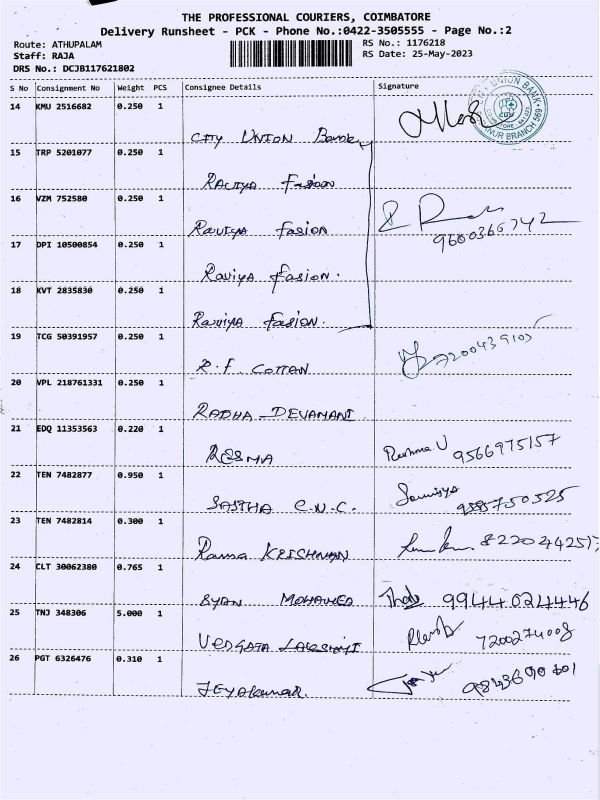 THE PROFESSIONAL COURIERS, COIMBATORE
Delivery Runsheet - PCK - Phone No.:0422-3505555 - Page No.:2
Route: ATHUPALAM
RS No.: 1176218
Staff: RAJA
RS Date: 25-May-2023
DRS No.: DCJB117621802
S No Consignment No Weight PCS Consignee Details Signature
14 KMU 2516682 0.250 1
CITY UNION Bank
UNION BANK
BRANCH 569
15 TRP 5201077 0.250 1
RAVIYA Fasion
16 VZM 752580 0.250 1
Raviya fasion
9600366742
17 DPI 10500854 0.250 1
Raviya fasion.
18 KVT 2835830 0.250 1
Raviya fasion.
19 TCG 50391957 0.250 1
R.F. COTTAN
7200439105
20 VPL 218761331 0.250 1
RADHA DEVAMANI
21 EDQ 11353563 0.220 1
RESMA Reshma U 9566975157
22 TEN 7482877 0.950 1
SASTHA C.N.C. Sowmiya 9585750525
23 TEN 7482814 0.300 1
Rama KRISHNAN 822044251
24 CLT 30062380 0.765 1
SYAN MOHAMED 9944024446
25 TNJ 348306 5.000 1
LAKSHMI 7200274008
26 PGT 6326476 0.310 1
JEYAkumar. 9843690601